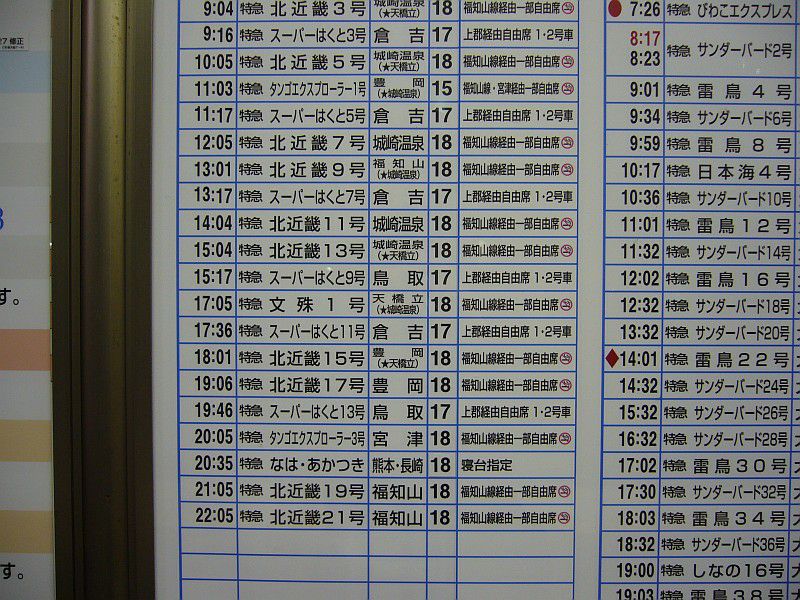 27修正
す。
す。
9:04 特急 北近畿3号 城崎温泉 (★天橋立) 18 福知山線経由一部自由席
9:16 特急 スーパーはくと3号 倉吉 17 上郡経由自由席 1・2号車
10:05 特急 北近畿5号 城崎温泉 (★天橋立) 18 福知山線経由一部自由席
11:03 特急 タンゴエクスプローラー1号 豊岡 (★城崎温泉) 15 福知山線・宮津経由一部自由席
11:17 特急 スーパーはくと5号 倉吉 17 上郡経由自由席 1・2号車
12:05 特急 北近畿7号 城崎温泉 18 福知山線経由一部自由席
13:01 特急 北近畿9号 福知山 (★城崎温泉) 18 福知山線経由一部自由席
13:17 特急 スーパーはくと7号 倉吉 17 上郡経由自由席 1・2号車
14:04 特急 北近畿11号 城崎温泉 18 福知山線経由一部自由席
15:04 特急 北近畿13号 城崎温泉 (★天橋立) 18 福知山線経由一部自由席
15:17 特急 スーパーはくと9号 鳥取 17 上郡経由自由席 1・2号車
17:05 特急 文殊1号 天橋立 (★城崎温泉) 18 福知山線経由一部自由席
17:36 特急 スーパーはくと11号 倉吉 17 上郡経由自由席 1・2号車
18:01 特急 北近畿15号 豊岡 (★天橋立) 18 福知山線経由一部自由席
19:06 特急 北近畿17号 豊岡 18 福知山線経由一部自由席
19:46 特急 スーパーはくと13号 鳥取 17 上郡経由自由席 1・2号車
20:05 特急 タンゴエクスプローラー3号 宮津 18 福知山線経由一部自由席
20:35 特急 なは・あかつき 熊本・長崎 18 寝台指定
21:05 特急 北近畿19号 福知山 18 福知山線経由一部自由席
22:05 特急 北近畿21号 福知山 18 福知山線経由一部自由席
●7:26 特急 びわこエクスプレス
8:17
8:23 特急 サンダーバード2号
9:01 特急 雷鳥4号
9:34 特急 サンダーバード6号
9:59 特急 雷鳥8号
10:17 特急 日本海4号
10:36 特急 サンダーバード10号
11:01 特急 雷鳥12号
11:32 特急 サンダーバード14号
12:02 特急 雷鳥16号
12:32 特急 サンダーバード18号
13:32 特急 サンダーバード20号
♦14:01 特急 雷鳥22号
14:32 特急 サンダーバード24号
15:32 特急 サンダーバード26号
16:32 特急 サンダーバード28号
17:02 特急 雷鳥30号
17:30 特急 サンダーバード32号
18:03 特急 雷鳥34号
18:32 特急 サンダーバード36号
19:00 特急 しなの16号
19:03 特急 雷鳥38号